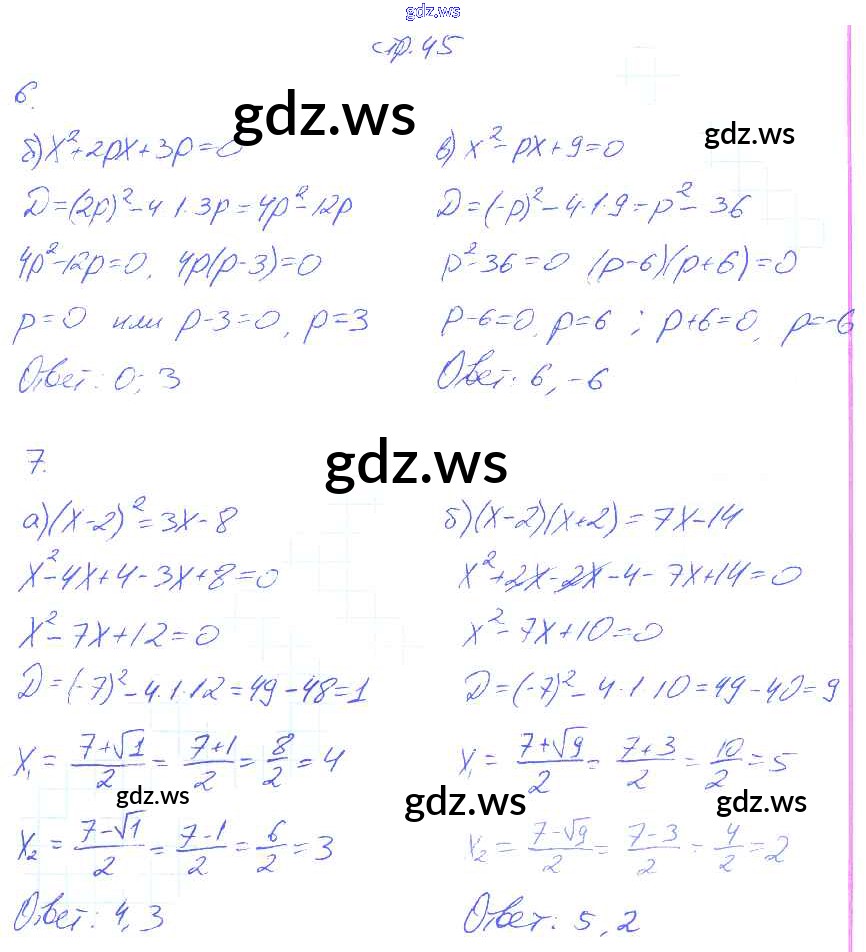 gdz.ws
стр. 45
6.
gdz.ws
gdz.ws
б) x²+2px+3p=0
D=(2p)²-4·1·3p=4p²-12p
4p²-12p=0, 4p(p-3)=0
p=0 или p-3=0, p=3
Ответ: 0; 3
в) x²-px+9=0
D=(-p)²-4·1·9=p²-36
p²-36=0 (p-6)(p+6)=0
p-6=0, p=6 ; p+6=0, p=-6
Ответ: 6, -6
7.
gdz.ws
а) (x-2)²=3x-8
x²-4x+4-3x+8=0
x²-7x+12=0
D=(-7)²-4·1·12=49-48=1
x₁ = (7+√1)/2 = (7+1)/2 = 8/2 = 4
gdz.ws
x₂ = (7-√1)/2 = (7-1)/2 = 6/2 = 3
Ответ: 4, 3
б) (x-2)(x+2)=7x-14
x²+2x-2x-4-7x+14=0
x²-7x+10=0
D=(-7)²-4·1·10=49-40=9
x₁ = (7+√9)/2 = (7+3)/2 = 10/2 = 5
gdz.ws
gdz.ws
x₂ = (7-√9)/2 = (7-3)/2 = 4/2 = 2
Ответ: 5, 2